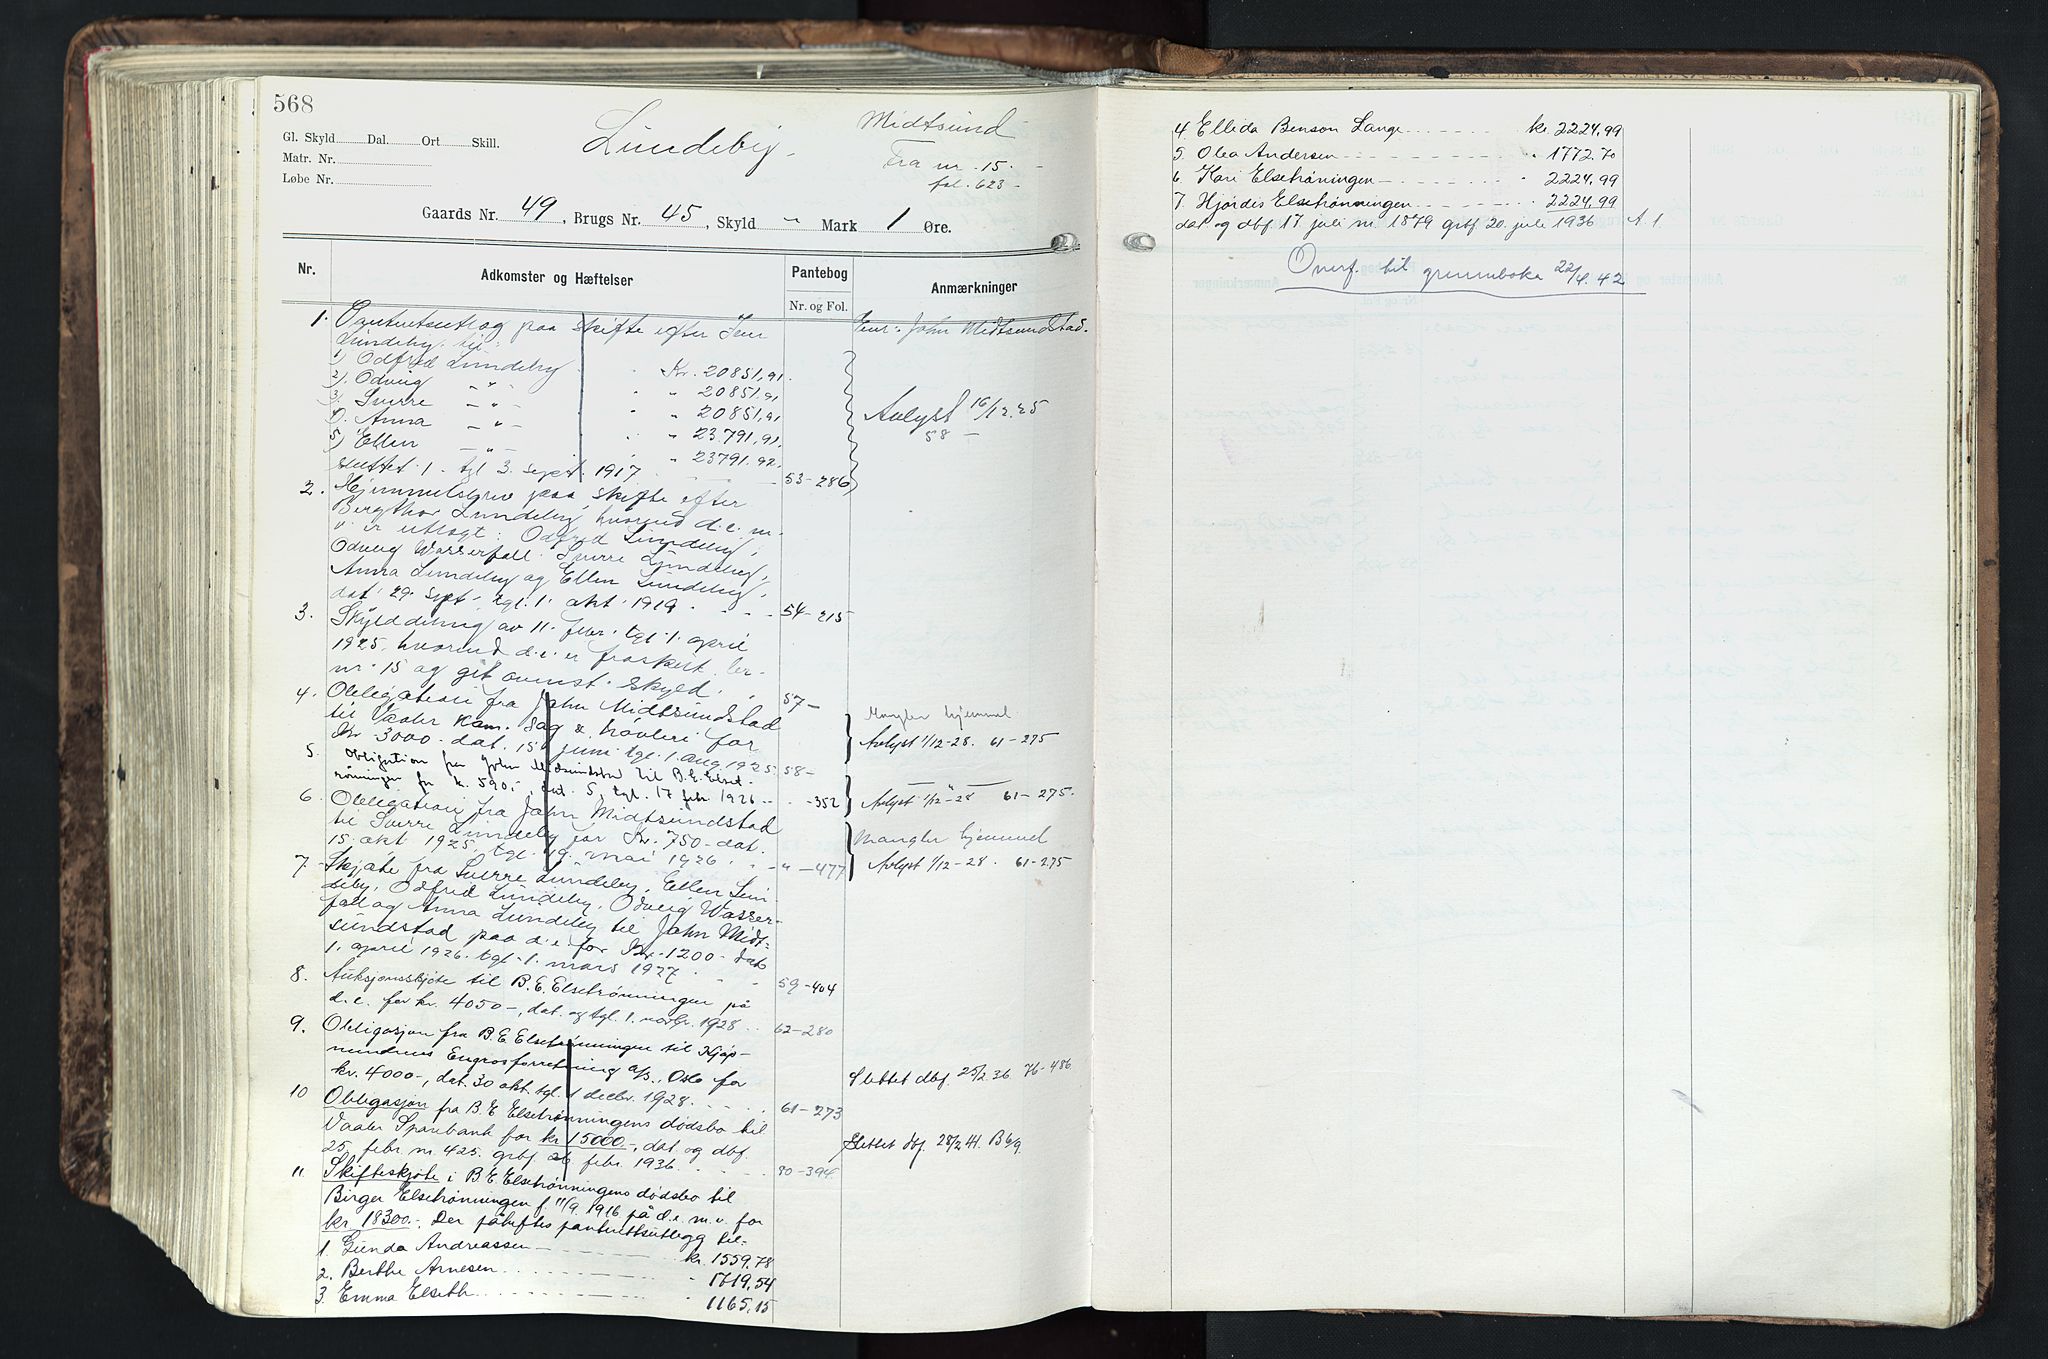 568
Gl. Skyld Dal. Ort Skill.
Matr. Nr.
Løbe Nr.
Lundeby.
Midtsund
Fra nr. 15.
fol. 623
Gaards Nr. 49, Brugs Nr. 45, Skyld " Mark 1 Øre.
Nr. Adkomster og Hæftelser Pantebog Anmærkninger
Nr. og Fol.
1. paa skifte efter Iver Eier: John Midtsundstad.
Lundeby til:
1) Odfrid Lundeby Kr. 20851,91.
2) Odveig — " — " 20851,91
3) Sverre — " — " 20851,91
4) Anna — " — " 23.791,91.
5) Ellen — " — " 23791.92.
sluttet 1. tgl 3. sept. 1917 53-286
Avlyst 16/12.25
58 —
2. Hjemmelsbrev paa skifte efter
Bergthor Lundeby, hvorved d.e. m.
v. er utlagt: Odfrid Lundeby,
Odveig Wasserfall. Sverre Lundeby,
Anna Lundeby og Ellen Lundeby,
dat. 29. sept., tgl. 1. okt. 1919. 54-215
3. Skylddeling av 11. febr. tgl. 1. april
1925, hvorved d.e. er fraskilt br-
nr. 15 og git ovenst. skyld. 57-
4. Obligation fra John Midtsundstad
til Vaaler kom. sag & høvleri for
Kr 3000. dat. 15 juni tgl. 1. aug. 1925. 58-
Mangler hjemmel
Avlyst 1/12-28. 61-275
5. Obligation fra John Midtsundstad til B.E. Elset-
rønningen for kr. 590,-, dat. 5, tgl. 17 febr 1926 " -352
— " —
Avlyst 1/12-28 61-275.
6. Obligation fra John Midtsundstad
til Sverre Lundeby for Kr. 750- dat.
15. okt 1925, tgl. 19. mai 1926. " -477
Mangler hjemmel
Avlyst 1/12-28. 61-275
7. Skjøte fra Sverre Lundeby, Ellen Lun-
deby, Odfrid Lundeby, Odveig Wasser-
fall og Anna Lundeby til John Midt-
sundstad paa d.e. for Kr. 1200- dat
1. april 1926. tgl. 1. mars 1927 59-404
8. Auksjonsskjøte til B.E. Elsetrønningen på
d.e. for kr. 4050-, dat. og tgl. 1. novbr. 1928 62-280
9. Obligasjon fra B.E Elsetrønningen til Kjøp-
mendenes Engrosforretning a/s., Oslo for
kr. 4000-, dat. 30 okt. tgl. 1 decbr. 1928. 61-273
Slettet dbf. 25/2 36. 76-486
10 Obligasjon fra B.E Elsetrønningens dødsbo til
Vaaler Sparebank for kr 15000.-, dat og dbf.
25. febr. nr. 425. grbf 26 febr. 1936. 80-394.
Slettet dbf. 28/2 41. B 6/9.
11. Skifteskjøte i B E Elsetrønningens dødsbo til
Birger Elsetrønningen f. 11/9. 1916 på d.e. m.v. for
kr. 18300.-. Der påheftes panterettsutlegg til:
1. Gunda Andreassen kr. 1559,78
2. Berthe Arnesen " 1719,54
3. Emma Elseth " 1165,15
4. Ellida Benson Lange kr. 2224,99
5. Olea Andersen " 1772.70
6. Kari Elsetrøningen " 2224,99
7. Hjørdis Elsetrønningen 2224,99
dat og dbf. 17 juli nr. 1879 grbf. 20. juli 1936 A 1
Overf. til grunnboka 22/4. 42